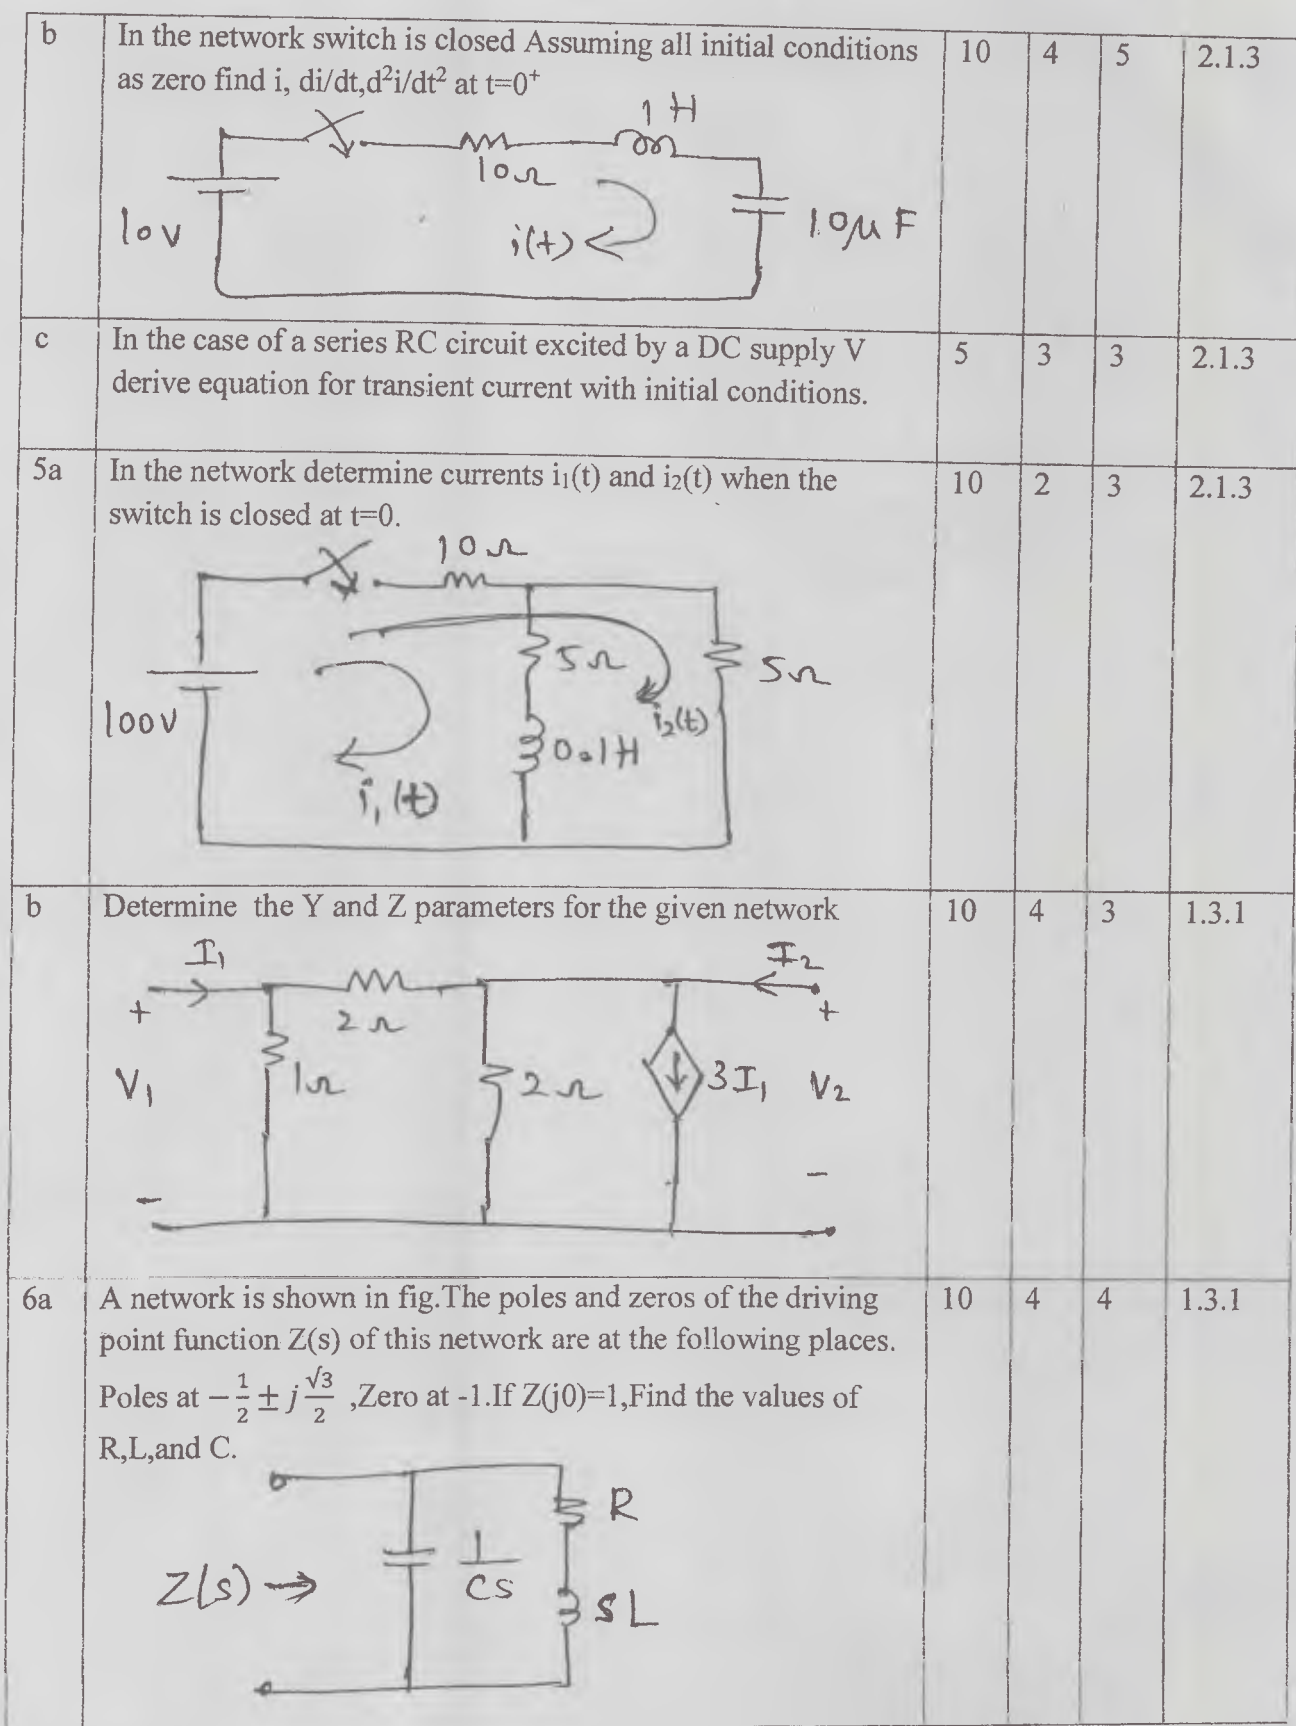 b In the network switch is closed Assuming all initial conditions 10 4 5 2.1.3
as zero find i, di/dt,d²i/dt² at t=0⁺
1 H
10Ω
10V
i(t)
10μF
c In the case of a series RC circuit excited by a DC supply V 5 3 3 2.1.3
derive equation for transient current with initial conditions.
5a In the network determine currents i₁(t) and i₂(t) when the 10 2 3 2.1.3
switch is closed at t=0.
10Ω
5Ω
5Ω
100V
i₂(t)
0.1H
i₁(t)
b Determine the Y and Z parameters for the given network 10 4 3 1.3.1
I₁ I₂
+ 2Ω +
V₁ 1Ω 2Ω 3I₁ V₂
- -
6a A network is shown in fig.The poles and zeros of the driving 10 4 4 1.3.1
point function Z(s) of this network are at the following places.
Poles at −1/2 ± j √3/2 ,Zero at -1.If Z(j0)=1,Find the values of
R,L,and C.
R
Z(s) → 1/CS
SL